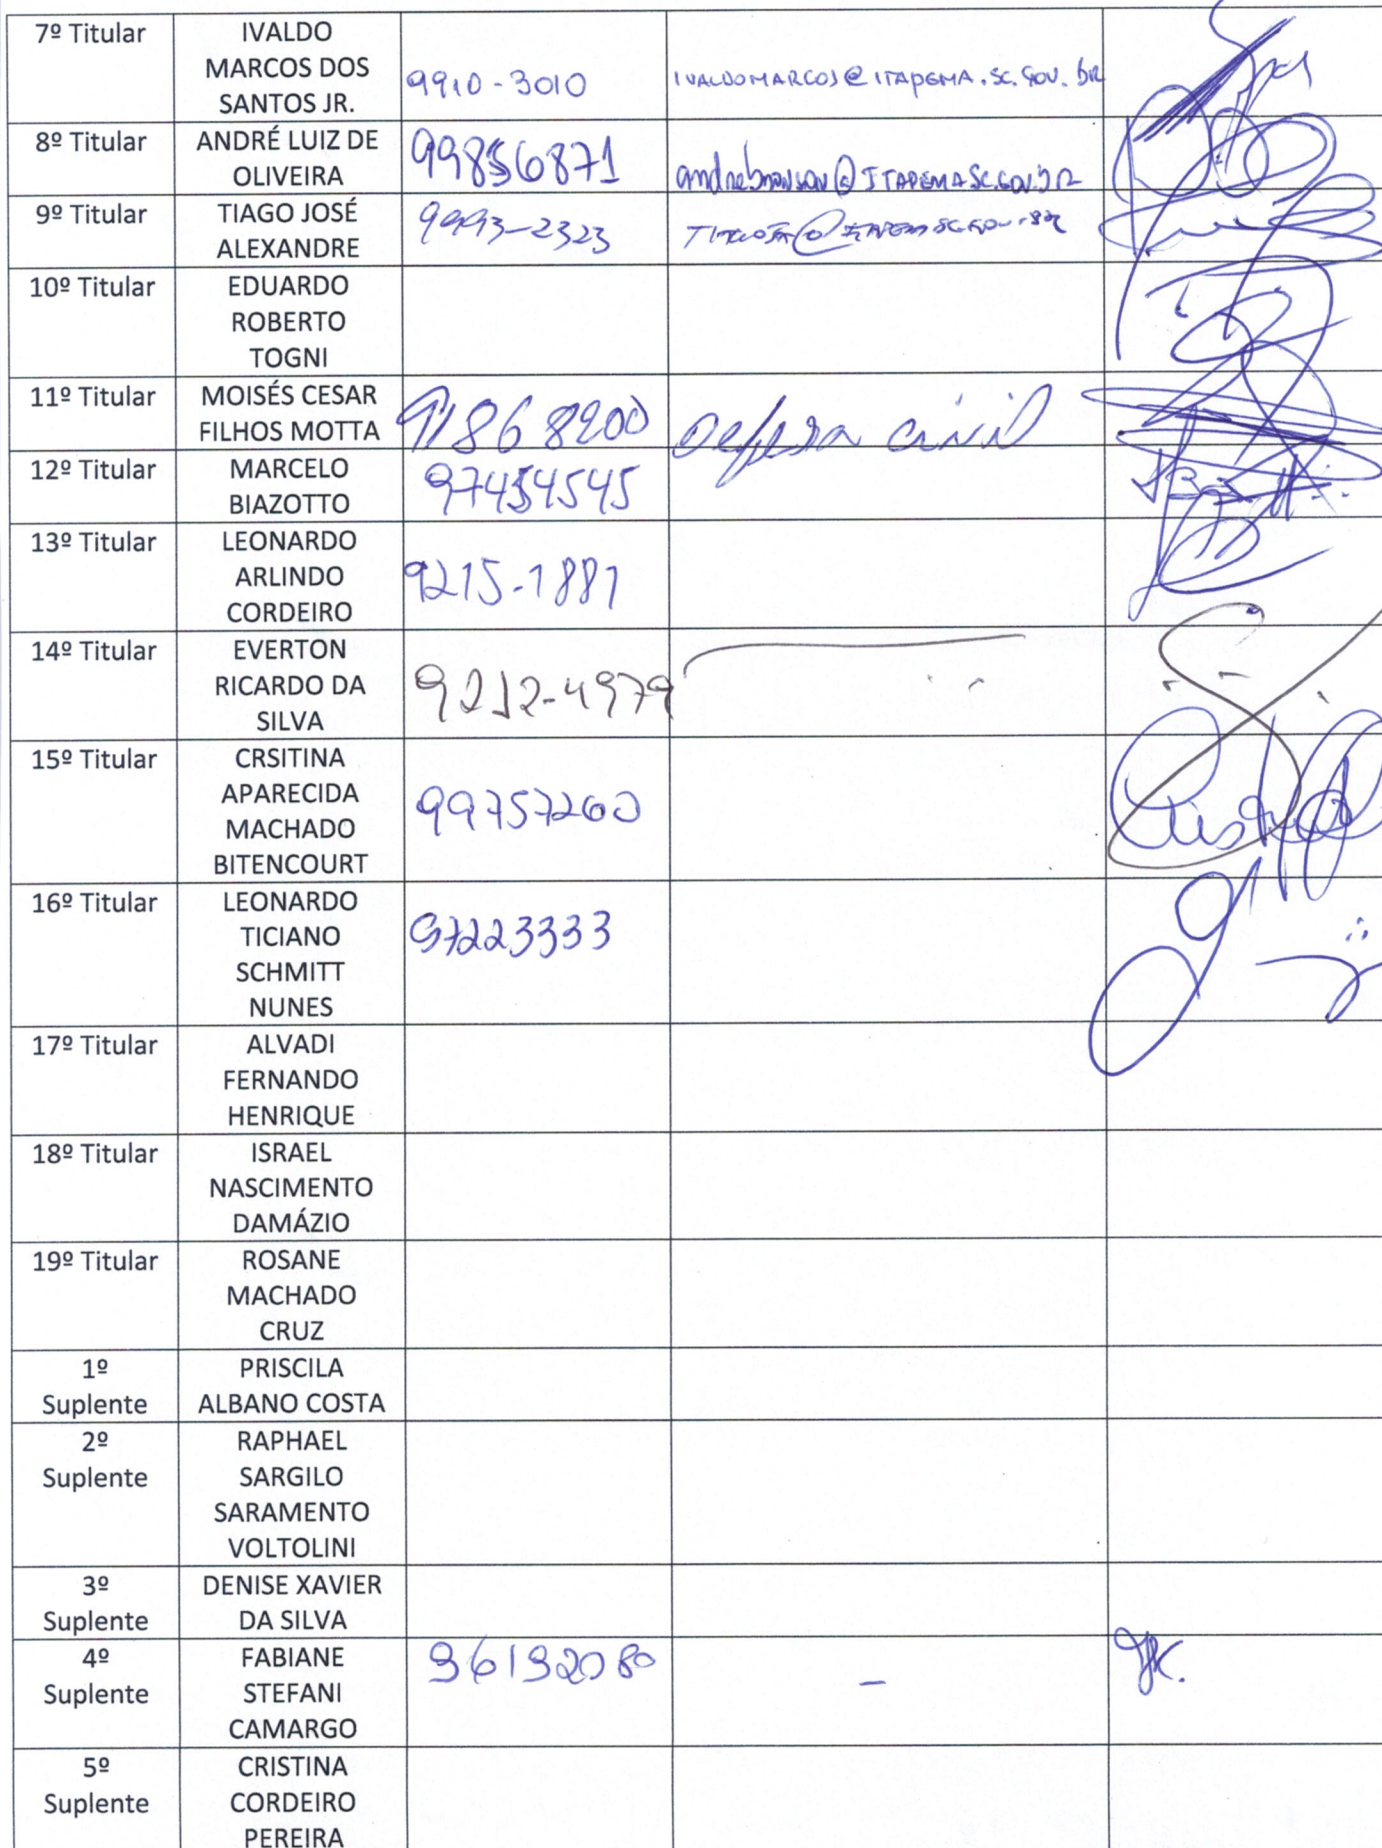 7º Titular
IVALDO
MARCOS DOS
SANTOS JR.
9910-3010
IVALDOMARCOS@ITAPEMA.SC.GOV.BR
8º Titular
ANDRÉ LUIZ DE
OLIVEIRA
99856871
9º Titular
TIAGO JOSÉ
ALEXANDRE
9993-2323
10º Titular
EDUARDO
ROBERTO
TOGNI
11º Titular
MOISÉS CESAR
FILHOS MOTTA
defesa civil
12º Titular
MARCELO
BIAZOTTO
97454545
13º Titular
LEONARDO
ARLINDO
CORDEIRO
9215-1881
14º Titular
EVERTON
RICARDO DA
SILVA
9212-4979
15º Titular
CRSITINA
APARECIDA
MACHADO
BITENCOURT
99757260
16º Titular
LEONARDO
TICIANO
SCHMITT
NUNES
97223333
17º Titular
ALVADI
FERNANDO
HENRIQUE
18º Titular
ISRAEL
NASCIMENTO
DAMÁZIO
19º Titular
ROSANE
MACHADO
CRUZ
1º
Suplente
PRISCILA
ALBANO COSTA
2º
Suplente
RAPHAEL
SARGILO
SARAMENTO
VOLTOLINI
3º
Suplente
DENISE XAVIER
DA SILVA
4º
Suplente
FABIANE
STEFANI
CAMARGO
96192080
-
5º
Suplente
CRISTINA
CORDEIRO
PEREIRA